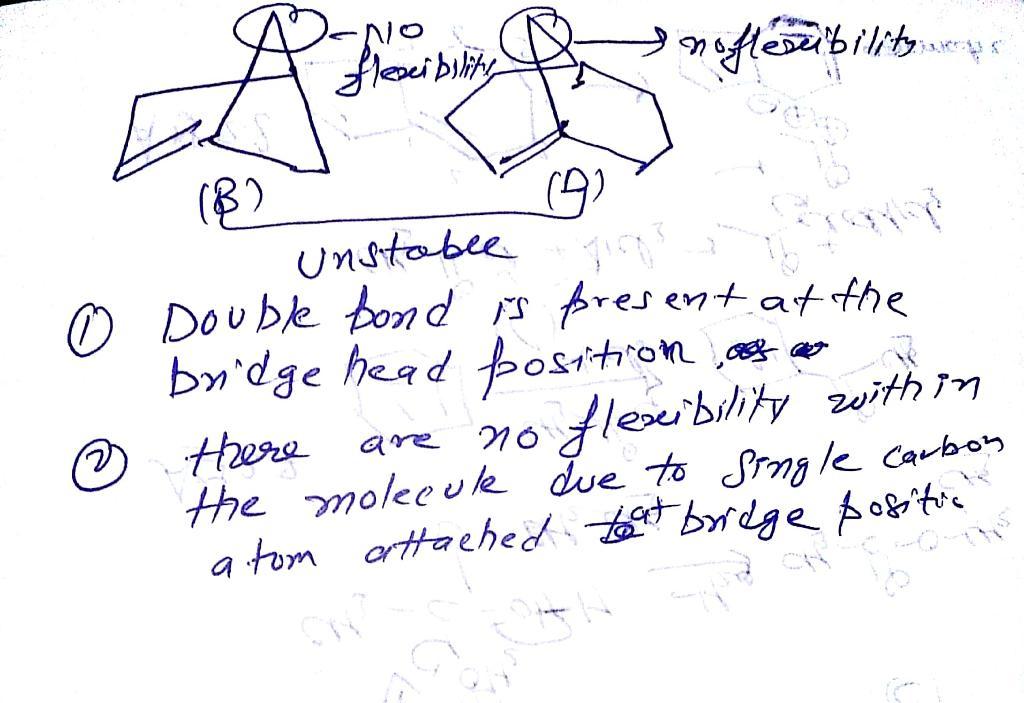 -No
flexibility
no flexibility
(B)
(A)
Unstable
① Double bond is present at the
bridge head position,
② there are no flexibility within
the molecule due to Single carbon
atom attached at bridge positio